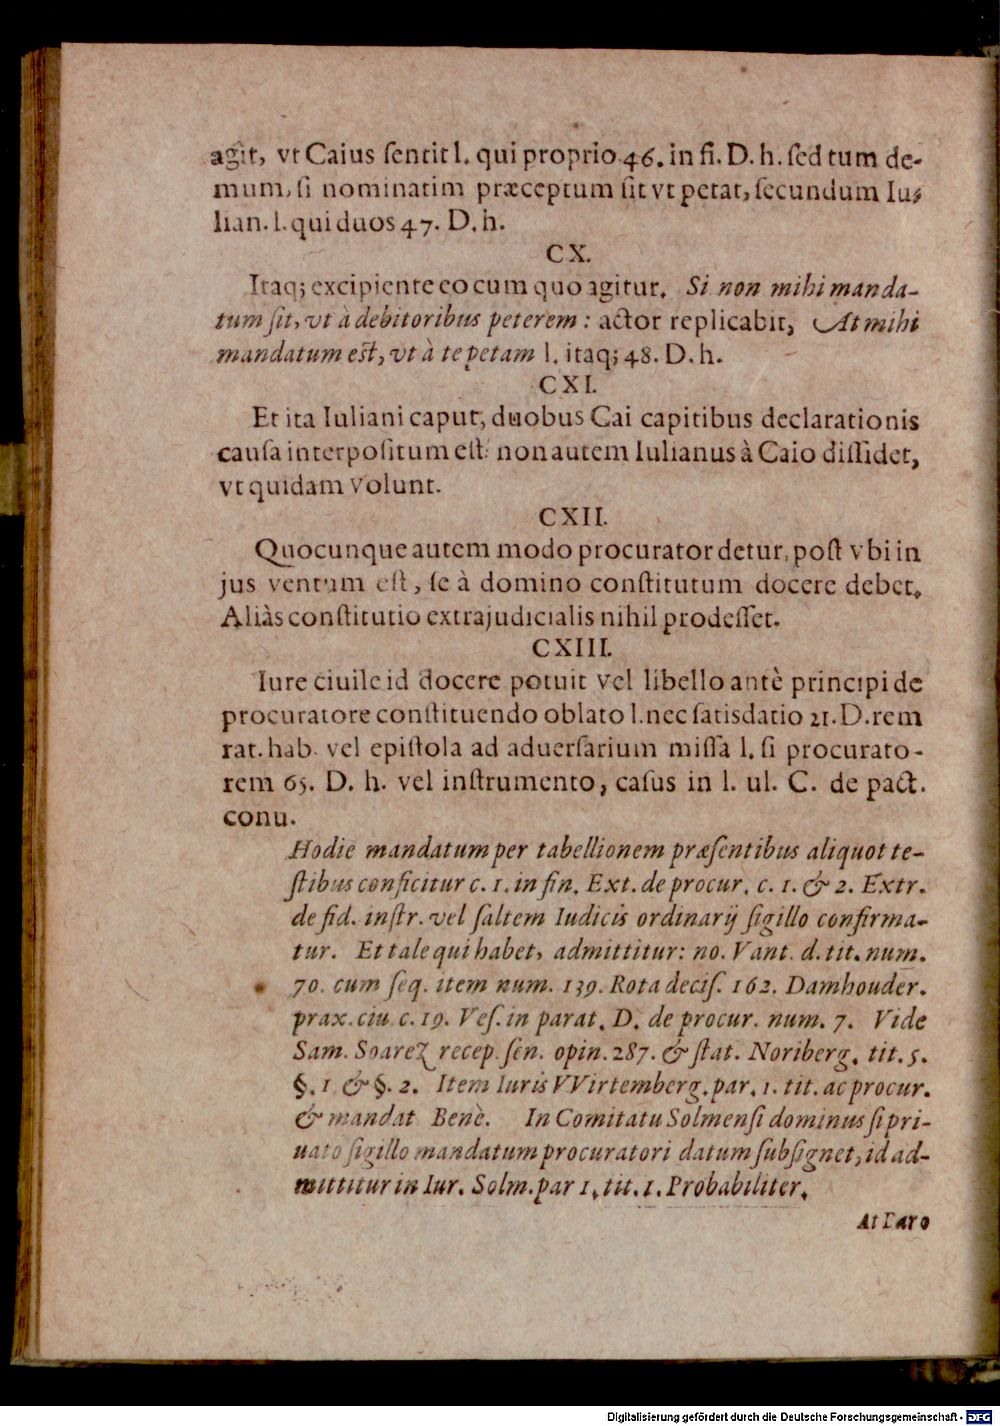 agit, vt Caius ſentit l. qui proprio 46. in fi. D. h. ſed tum de-
mum, ſi nominatim præceptum ſit vt petat, ſecundum Iu-
lian. l. qui duos 47. D. h.
CX.
Itaq; excipiente eo cum quo agitur. Si non mihi manda-
tum ſit, vt à debitoribus peterem: actor replicabit, At mihi
mandatum eſt, vt à te petam l. itaq; 48. D. h.
CXI.
Et ita Iuliani caput, duobus Cai capitibus declarationis
cauſa interpoſitum eſt: non autem Iulianus à Caio diſſidet,
vt quidam volunt.
CXII.
Quocunque autem modo procurator detur, poſt vbi in
jus ventum eſt, ſe à domino conſtitutum docere debet.
Aliàs conſtitutio extrajudicialis nihil prodeſſet.
CXIII.
Iure ciuile id docere potuit vel libello antè principi de
procuratore conſtituendo oblato l. nec ſatisdatio 21. D. rem
rat. hab. vel epiſtola ad aduerſarium miſſa l. ſi procurato-
rem 65. D. h. vel inſtrumento, caſus in l. ul. C. de pact.
conu.
Hodie mandatum per tabellionem præſentibus aliquot te-
ſtibus conficitur c. 1. in fin. Ext. de procur. c. 1. & 2. Extr.
de fid. inſtr. vel ſaltem Iudicis ordinarij ſigillo confirma-
tur. Et tale qui habet, admittitur: no. Vant. d. tit. num.
70. cum ſeq. item num. 139. Rota deciſ. 162. Damhouder.
prax. ciu. c. 19. Veſ. in parat. D. de procur. num. 7. Vide
Sam. Soarez recep. ſen. opin. 287. & ſtat. Noriberg. tit. 5.
§. 1. & §. 2. Item Iuris VVirtemberg. par. 1. tit. ac procur.
& mandat. Benè. In Comitatu Solmenſi dominus ſi pri-
uato ſigillo mandatum procuratori datum ſubſignet, id ad-
mittitur in Iur. Solm. par 1. tit. 1. Probabiliter.
At
Digitalisierung gefördert durch die Deutsche Forschungsgemeinschaft - DFG